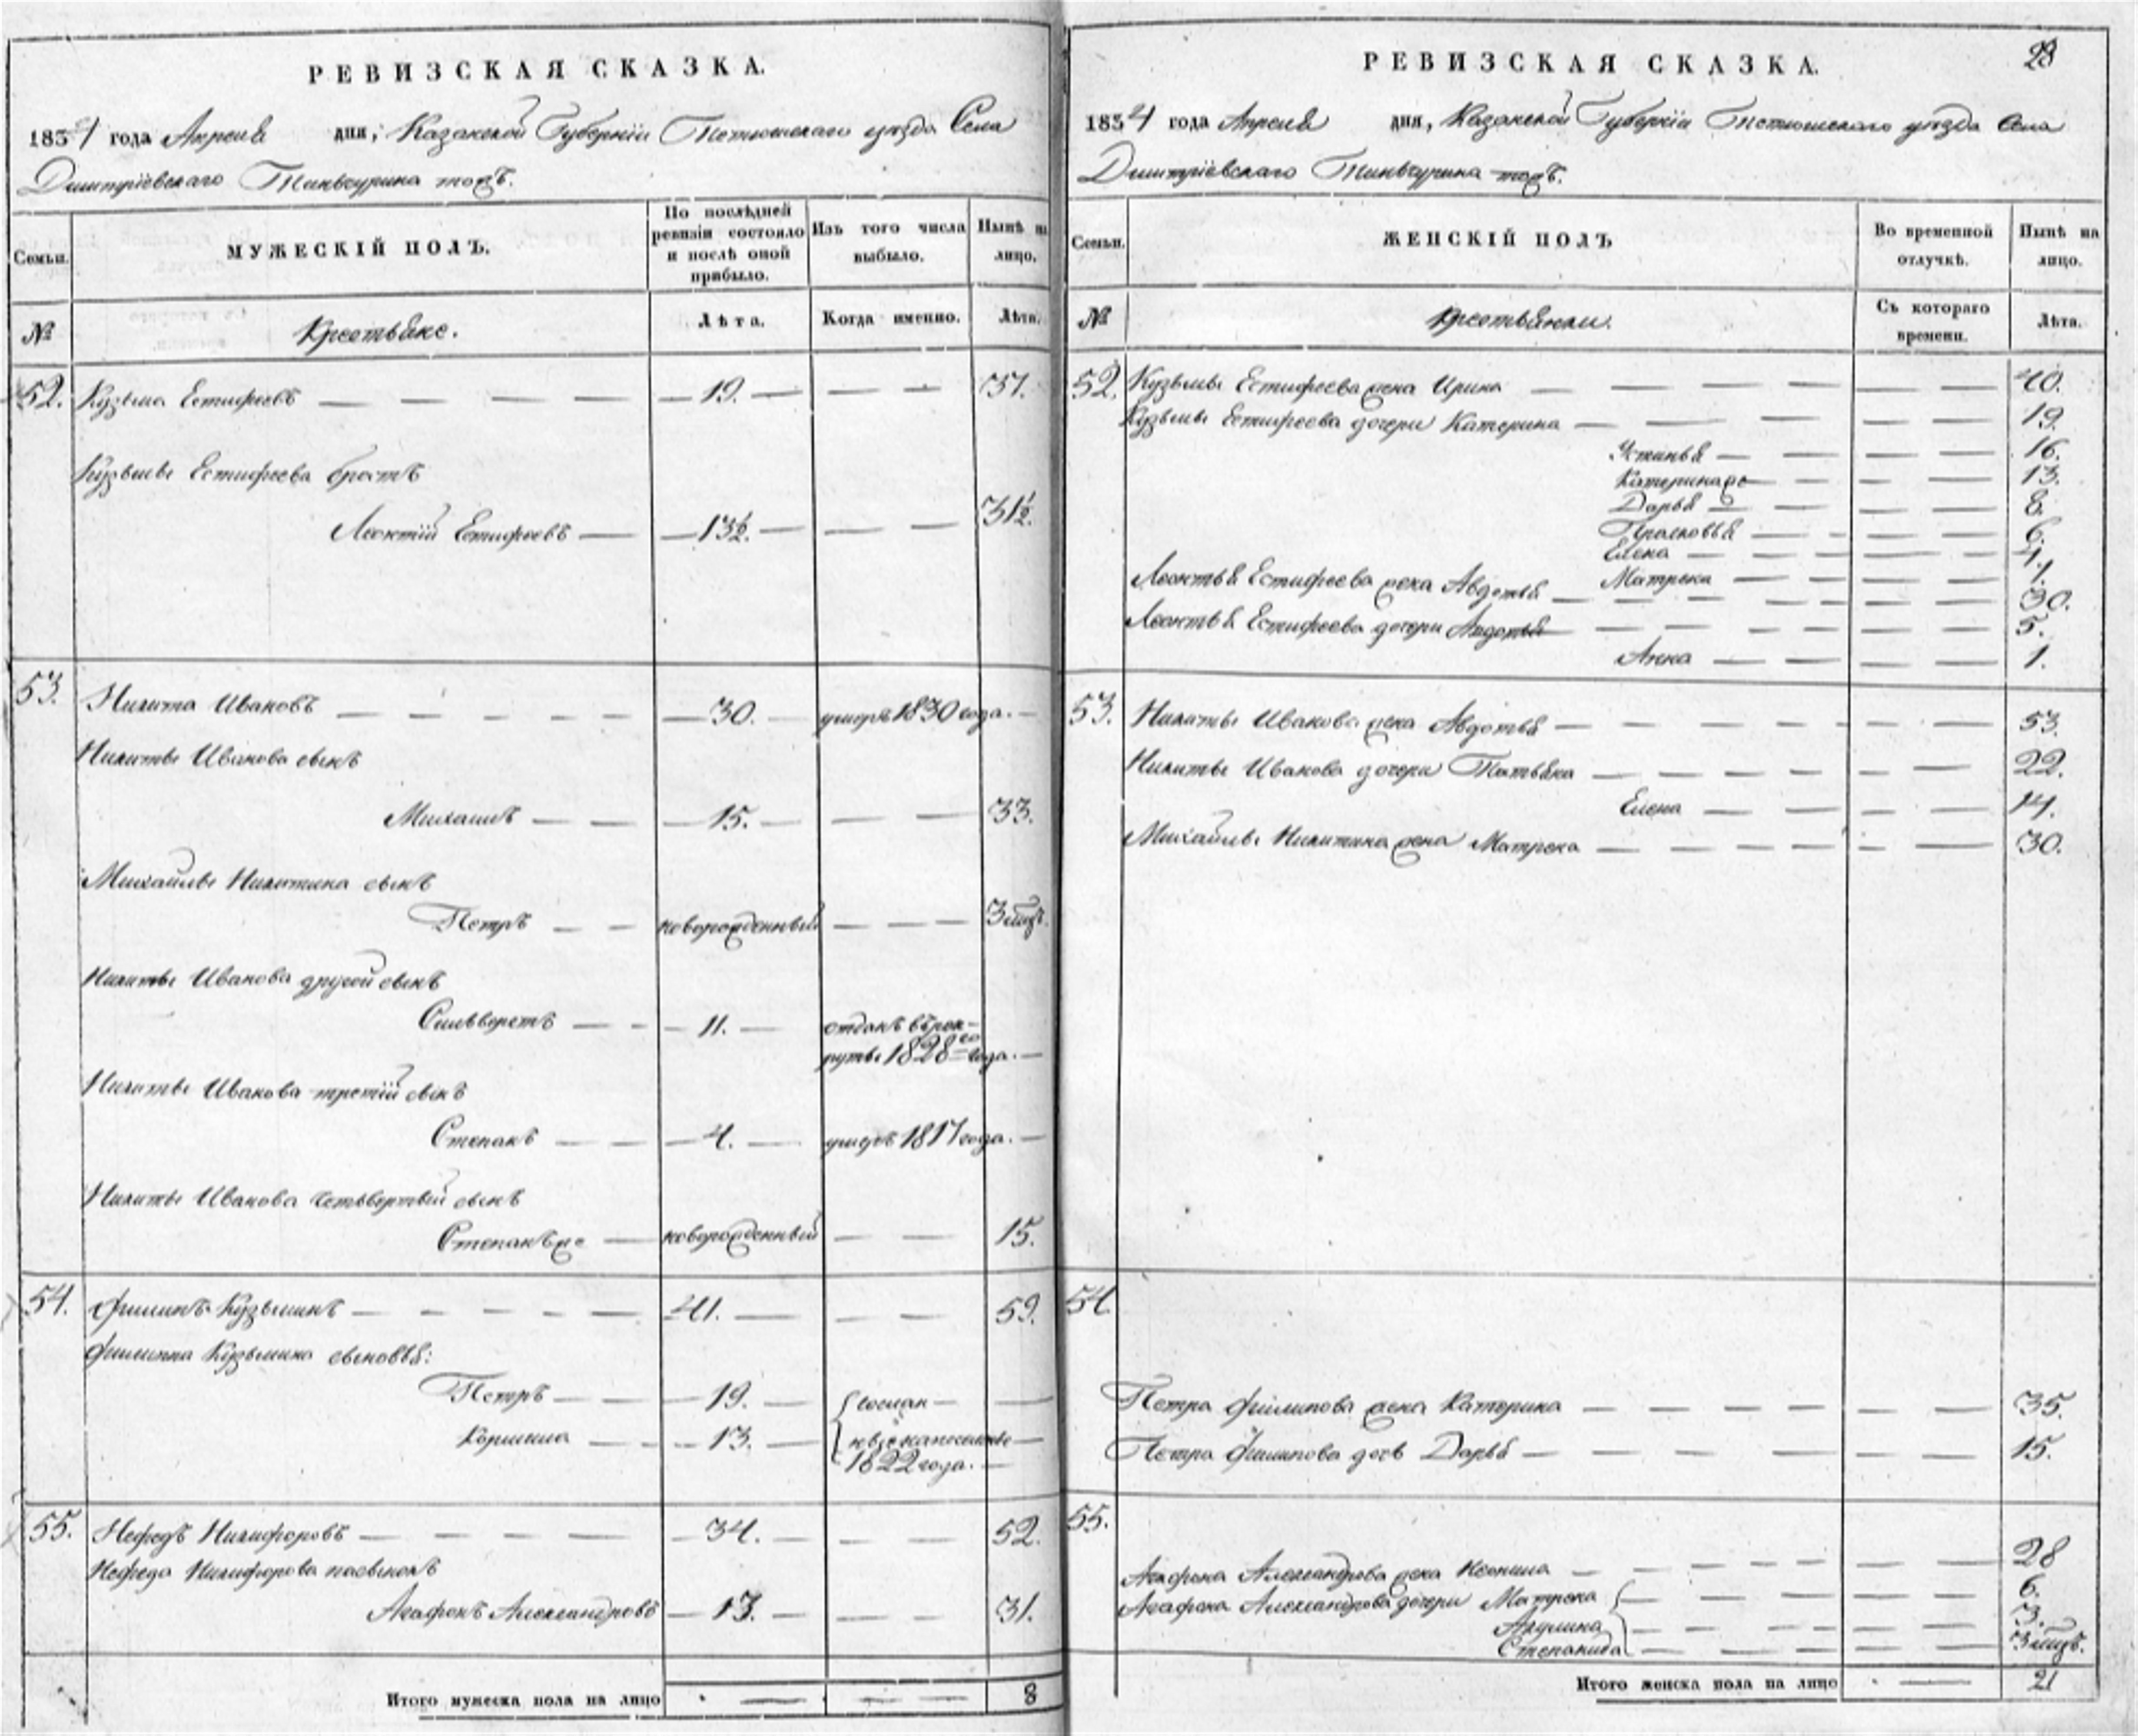 РЕВИЗСКАЯ СКАЗКА.
1834 года Апреля дня, Казанской Губерніи Тетюшскаго уѣзда Села
Дмитріевскаго Тиньчурина тожъ.
Семьи.
МУЖЕСКІЙ ПОЛЪ.
По послѣдней ревизіи состояло и послѣ оной прибыло.
Изъ того числа выбыло.
Нынѣ на лицо.
№
Крестьяне.
Лѣта.
Когда именно.
Лѣта.
52. Кузьма Естифеевъ — 19. — — 37.
Кузьмы Естифеева братъ
Леонтій Естифеевъ — 13½. — — 31½.
53. Никита Ивановъ — 30. — умеръ 1830 года. —
Никиты Иванова сынъ
Михаилъ — 15. — — 33.
Михайлы Никитина сынъ
Петръ — новорожденный — — 3 мцъ.
Никиты Иванова другой сынъ
Сильверстъ — 11. — отданъ въ рек-
руты 1828го года. —
Никиты Иванова третій сынъ
Степанъ — 4. — умеръ 1817 года. —
Никиты Иванова четьвертый сынъ
Степанъ же — новорожденный — — 15.
54. Филипъ Кузьминъ — 41. — — 59.
Филиппа Кузьмина сыновья:
Петръ — 19. — сослан —
Корнила — 13. —
1822 года. —
55. Нефедъ Никифоровъ — 34. — — 52.
Нефеда Никифорова пасынокъ
Агафонъ Александровъ — 13. — — 31.
Итого мужеска пола на лицо — — 8
23
РЕВИЗСКАЯ СКАЗКА.
1834 года Апреля дня, Казанской Губерніи Тетюшскаго уѣзда Села
Дмитріевскаго Тиньчурина тожъ.
Семьи.
ЖЕНСКІЙ ПОЛЪ
Во временной отлучкѣ.
Нынѣ на лицо.
№
Крестьянки.
Съ котораго времени.
Лѣта.
52. Кузьмы Естифеева жена Ирина — — 40.
Кузьмы Естифеева дочери Катерина — — 19.
Устинья — — 16.
Катерина же — — 13.
Дарья — — 8.
Прасковья — — 6.
Елена — — 4.
Матрена — — 1.
Леонтья Естифеева жена Авдотья — — 30.
Леонтья Естифеева дочери Авдотья — — 5.
Анна — — 1.
53. Никиты Иванова жена Авдотья — — 53.
Никиты Иванова дочери Татьяна — — 22.
Елена — — 14.
Михайлы Никитина жена Матрена — — 30.
54
Петра Филипова жена Катерина — — 35.
Петра Филипова дочь Дарья — — 15.
55.
Агафона Александрова жена Ксенина — — 28
Агафона Александрова дочери Матрена — — 6.
Акулина — — 3.
Степанида — — 3 мцъ.
Итого женска пола на лицо — 21